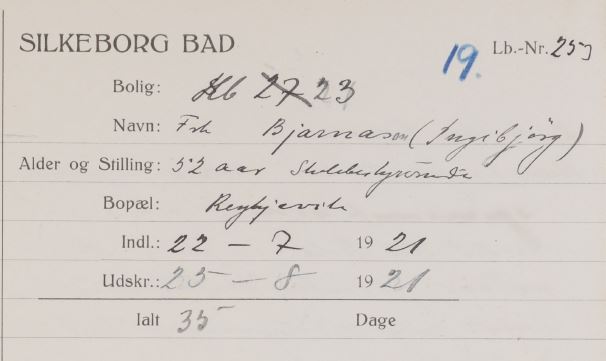 SILKEBORG BAD
19. Lb.-Nr. 253
Bolig: Hb 27 23
Navn: Frk Bjarnason (Ingibjörg)
Alder og Stilling: 52 aar Skolebestyrerinde
Bopæl: Reykjavik
Indl.: 22 - 7 1921
Udskr.: 25 - 8 1921
Ialt 35 Dage